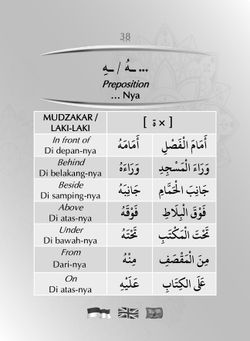 38
... ـهُ / ـهِ
Preposition
... Nya
MUDZAKAR / LAKI-LAKI
[ × ة ]
In front of
Di depan-nya
أَمَامَهُ
أَمَامَ الْفَصْلِ
Behind
Di belakang-nya
وَرَاءَهُ
وَرَاءَ الْمَسْجِدِ
Beside
Di samping-nya
جَانِبَهُ
جَانِبَ الْحَمَّامِ
Above
Di atas-nya
فَوْقَهُ
فَوْقَ الْبِلَاطِ
Under
Di bawah-nya
تَحْتَهُ
تَحْتَ الْمَكْتَبِ
From
Dari-nya
مِنْهُ
مِنَ الْمَقْصَفِ
On
Di atas-nya
عَلَيْهِ
عَلَى الْكِتَابِ